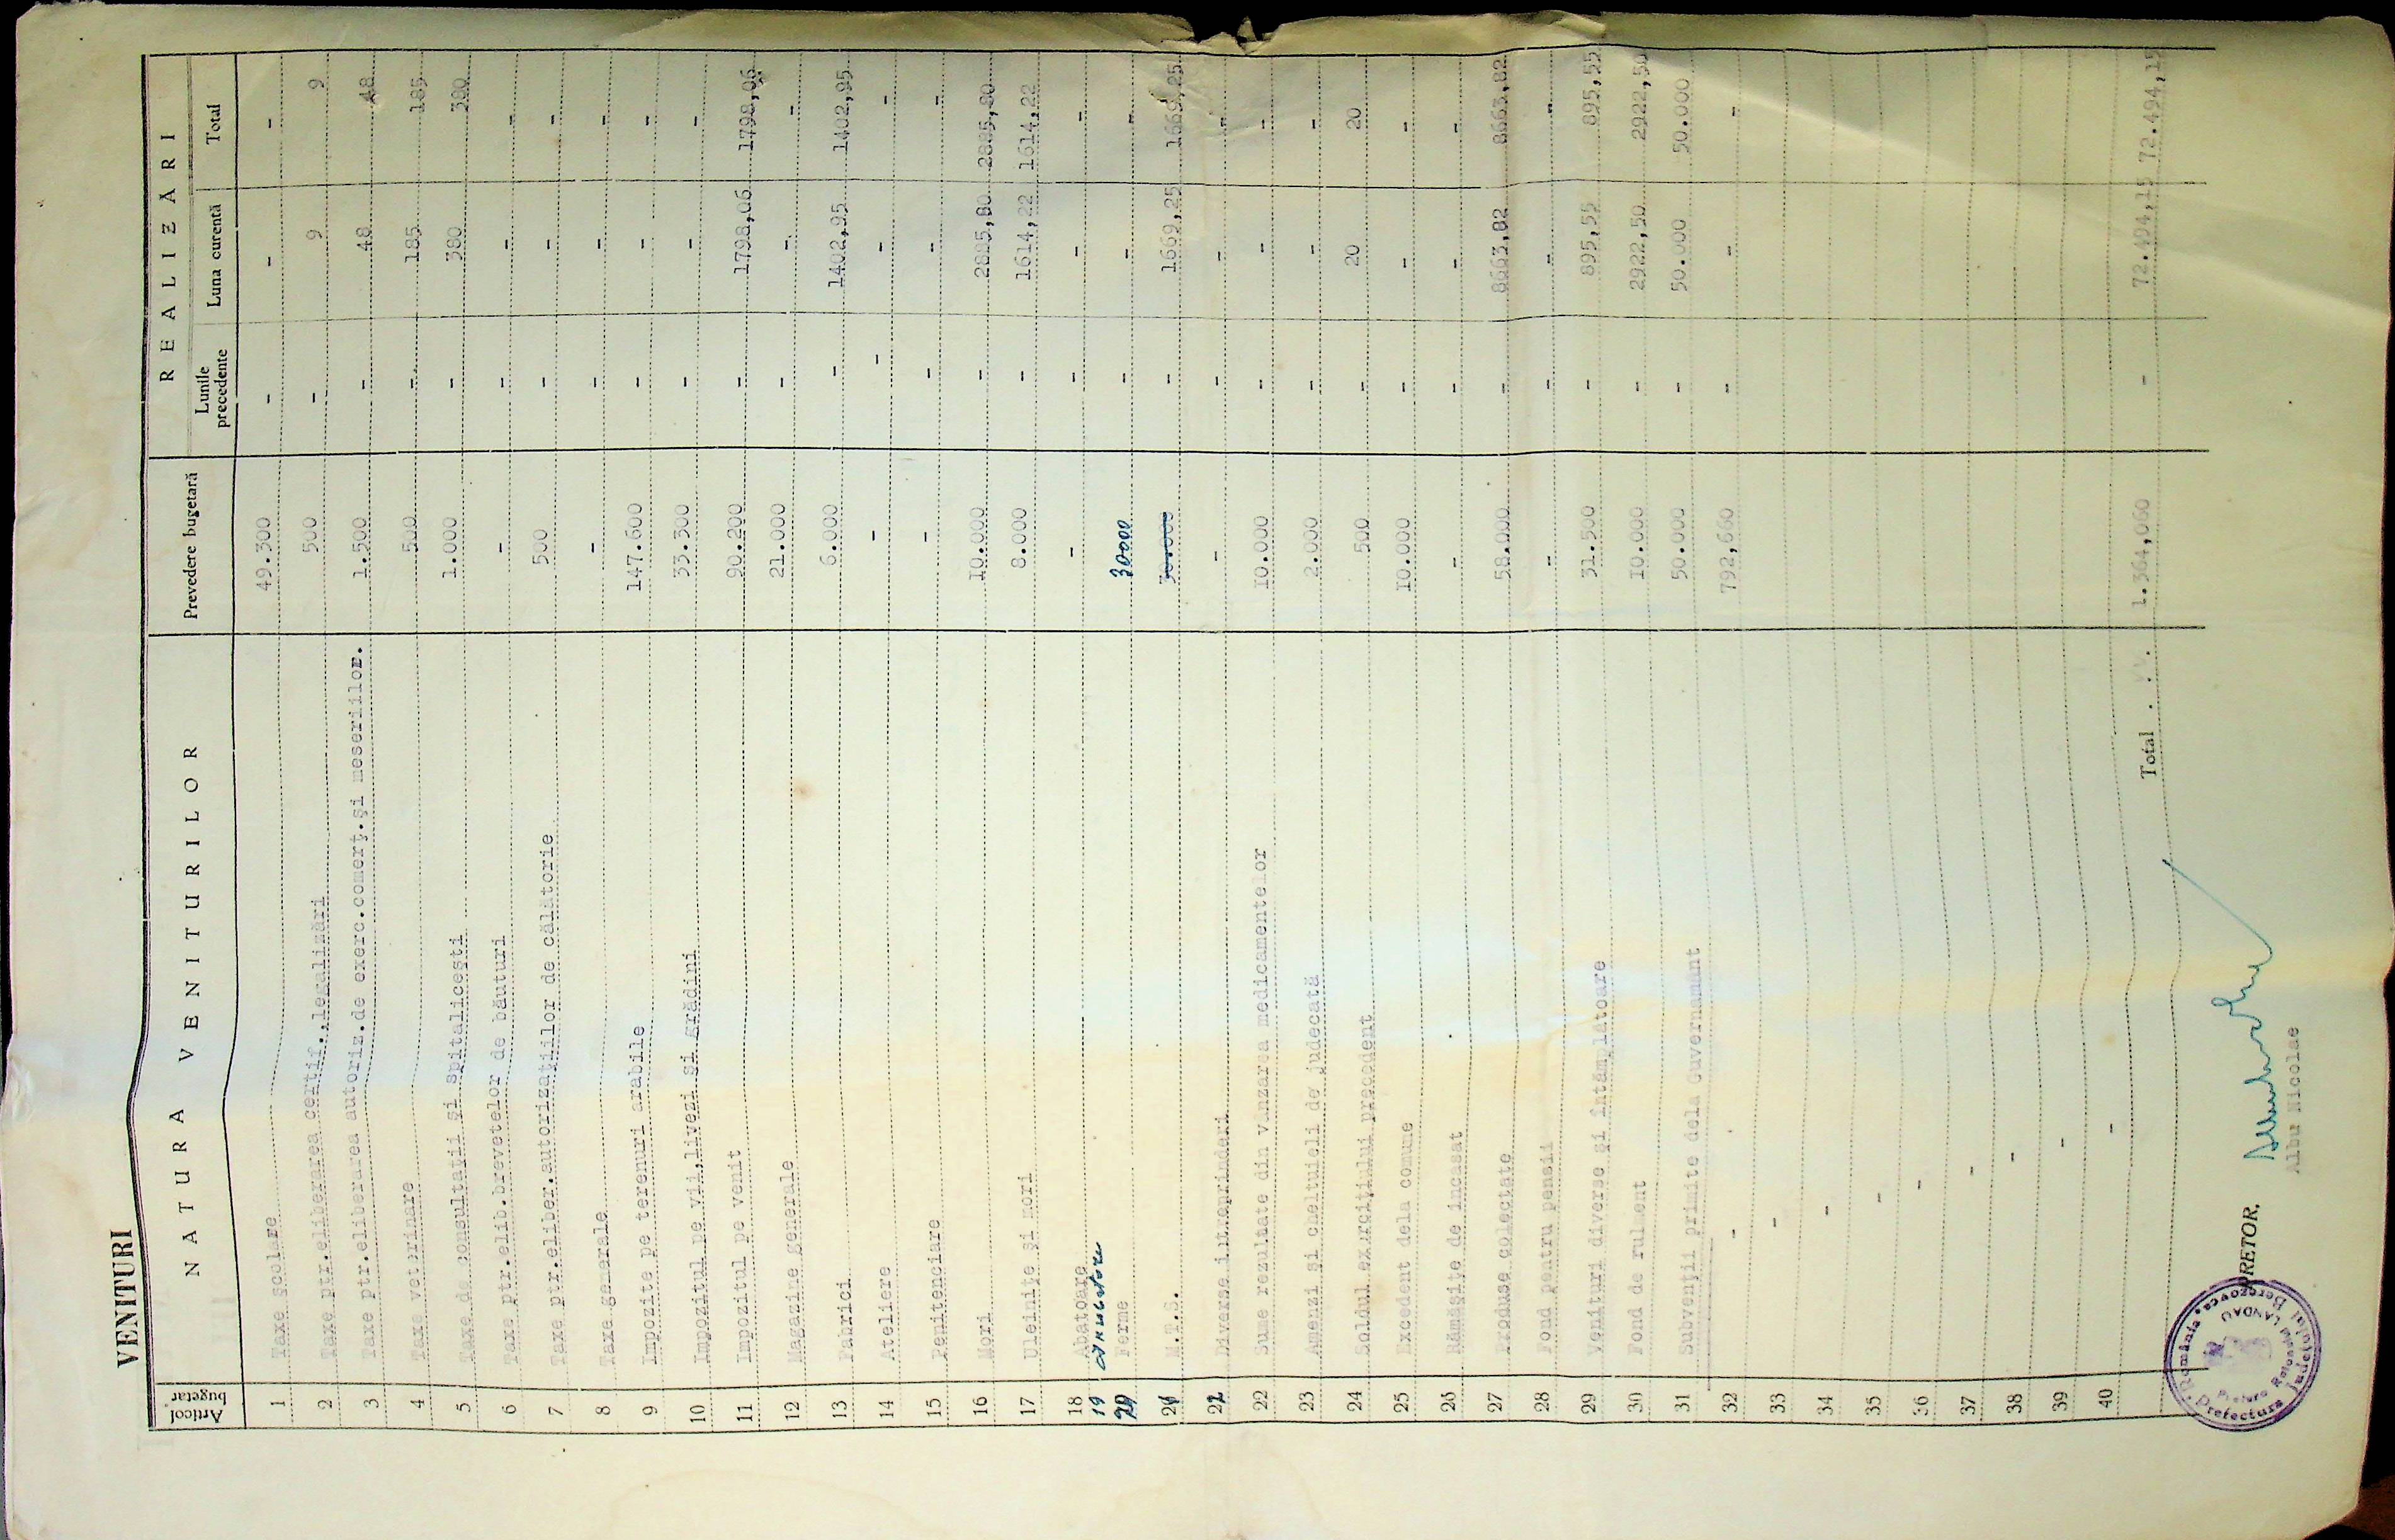 VENITURI
Articol bugetar | NATURA VENITURILOR | Prevedere bugetară | REALIZĂRI
Lunile precedente | Luna curentă | Total
1 Taxe şcolare 49.300 - - -
2 Taxe ptr.eliberarea certif.,legalizări 500 - 9 9
3 Taxe ptr.eliberarea autoriz.de exerc.comerţ.şi meseriilor. 1.500 - 48 48
4 Taxe veterinare 500 - 185 185
5 Taxe de consultaţii şi spitaliceşti 1.000 - 380 380
6 Taxe ptr.elib.brevetelor de băuturi - - - -
7 Taxe ptr.eliber.autorizaţiilor de călătorie 500 - - -
8 Taxe generale - - - -
9 Impozite pe terenuri arabile 147.600 - - -
10 Impozitul pe vii,livezi si grădini 33.300 - - -
11 Impozitul pe venit 90.200 - 1798,06 1798,06
12 Magazine generale 21.000 - - -
13 Fabrici 6.000 - 1402,95 1402,95
14 Ateliere - - - -
15 Penitenciare - - - -
16 Mori 10.000 - 2885,80 2885,80
17 Uleiniţe şi mori 8.000 - 1614,22 1614,22
18 Abatoare - - - -
19
20 Ferme 30000 - - -
21 M.T.S. 30.000 - 1669,25 1669,25
22 Diverse intreprinderi - - - -
22 Sume rezultate din vânzarea medicamentelor 10.000 - - -
23 Amenzi si cheltuieli de judecată 2.000 - - -
24 Soldul exerciţiului precedent 500 - 20 20
25 Excedent dela comune 10.000 - - -
26 Rămăşiţe de incasat - - - -
27 Produse colectate 58.000 - 8663,82 8663,82
28 Fond pentru pensii - - - -
29 Venituri diverse şi întâmplătoare 31.500 - 895,55 895,55
30 Fond de rulment 10.000 - 2922,50 2922,50
31 Subvenţii primite dela Guvernamant 50.000 - 50.000 50.000
32 - 792,660 - - -
33 -
34 -
35 -
36 -
37 -
38 -
39 -
40 -
Total . . . 1.364,060 - 72.494,15 72.494,15
PRETOR,
Albu Nicolae
România
Prefectura Judeţului Berezovca
Pretura Raionului LANDAU